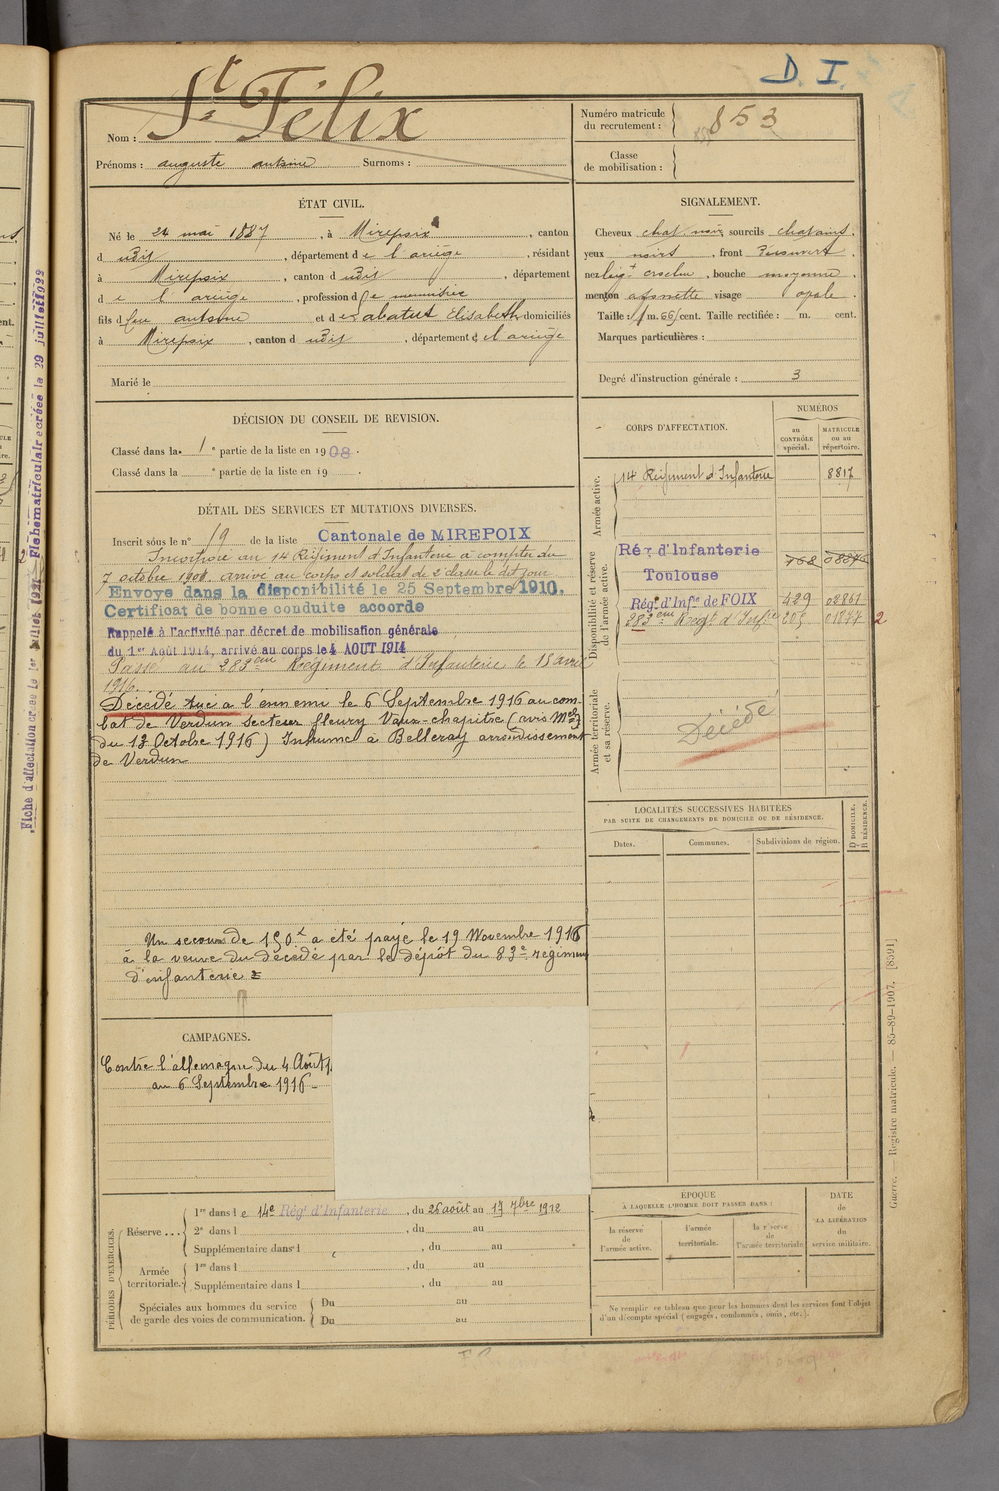 D. I.
Nom : St Félix
Prénoms : auguste antoine Surnoms :
Numéro matricule du recrutement : 853
Classe de mobilisation :
ÉTAT CIVIL.
Né le 24 mai 1887, à Mirepoix, canton
d udit, département de l'ariège, résidant
à Mirepoix, canton d udit, département
de l'ariège, profession de menuisier
fils d feu antoine et de abatut Elisabeth, domiciliés
à Mirepoix, canton d udit, département d el ariège
Marié le
SIGNALEMENT.
Cheveux chat noir sourcils chatains,
yeux noirs, front découvert,
nez bouche moyenne,
menton visage ovale.
Taille : 1 m. 66 cent. Taille rectifiée : m. cent.
Marques particulières :
Degré d'instruction générale : 3
DÉCISION DU CONSEIL DE REVISION.
Classé dans la 1e partie de la liste en 1908.
Classé dans la e partie de la liste en 19 .
DÉTAIL DES SERVICES ET MUTATIONS DIVERSES.
Inscrit sous le n° 19 de la liste Cantonale de MIREPOIX
Incorporé au 14 Régiment d'Infanterie à compter du
7 octobre 1908. arrivé au corps et soldat de 2 classe le dit jour
Envoyé dans la disponibilité le 25 Septembre 1910.
Certificat de bonne conduite accordé
Rappelé à l'activité par décret de mobilisation générale
du 1er Août 1914, arrivé au corps le 4 AOUT 1914
Passé au 283eme Régiment d'Infanterie le 15 avril
1916.
Décédé tué à l'ennemi le 6 Septembre 1916 au com-
bat de Verdun secteur fleury Vaux-chapitre (avis Mel
du 13 Octobre 1916) Inhumé à Belleray arrondissement
de Verdun
Un secours de 150f a été payé le 19 Novembre 1916
à la veuve du décédé par le dépôt du 83e régiment
d'infanterie
CORPS D'AFFECTATION.
NUMÉROS
au CONTRÔLE spécial.
MATRICULE ou au répertoire.
Armée active.
14e Régiment d'Infanterie 8817
Disponibilité et réserve de l'armée active.
Rég. d'Infanterie 768
Toulouse
Rég. d'Infie de FOIX 429 02861
283eme Regt d'Infie 205 01877 2
Armée territoriale et sa réserve.
Décédé
LOCALITÉS SUCCESSIVES HABITÉES
PAR SUITE DE CHANGEMENTS DE DOMICILE OU DE RÉSIDENCE.
Dates. Communes. Subdivisions de région. D DOMICILE. R RÉSIDENCE.
CAMPAGNES.
Contre l'allemagne du 4 Août 14
au 6 Septembre 1916
PÉRIODES D'EXERCICES.
Réserve ...
1re dans le 14e Régt d'Infanterie, du 26 août au 17 7bre 1912
2e dans l , du au
Supplémentaire dans l , du au
Armée territoriale.
1re dans l , du au
Supplémentaire dans l , du au
Spéciales aux hommes du service de garde des voies de communication.
Du au
Du au
ÉPOQUE
À LAQUELLE L'HOMME DOIT PASSER DANS :
la réserve de l'armée active.
l'armée territoriale.
la réserve de l'armée territoriale
DATE de LA LIBÉRATION du service militaire.
Ne remplir ce tableau que pour les hommes dont les services font l'objet
d'un décompte spécial (engagés, condamnés, omis, etc.).
Guerre. — Registre matricule. — 85-89-1907. [8591]